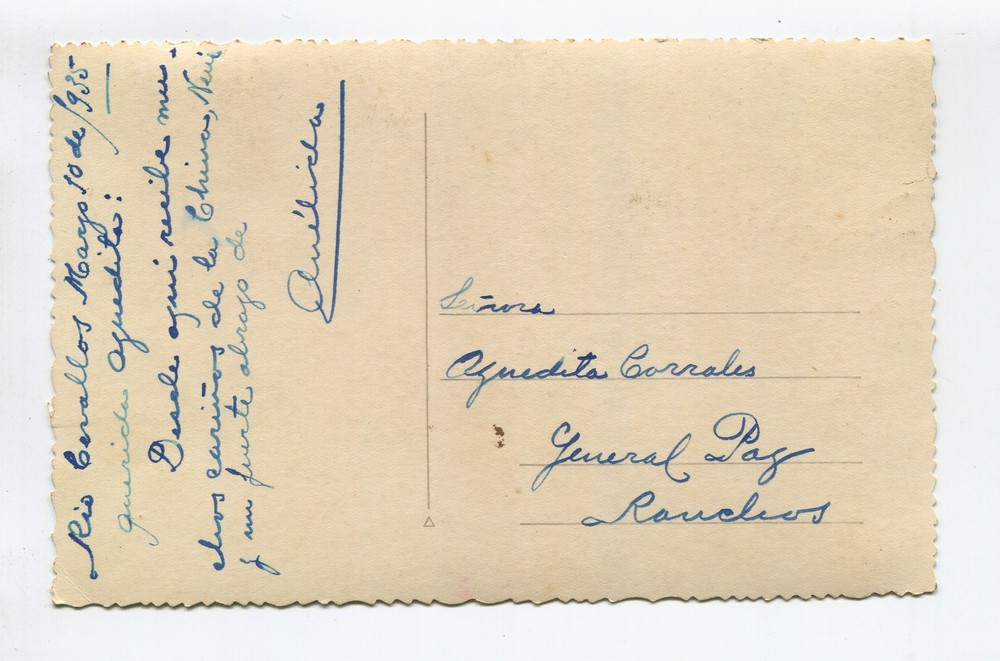 Rio Cevallos Marzo 10 de 1935
querida Aguedita:
Desde aqui recibe mu-
chos cariños de la China, Nené
y un fuerte abrazo de
Anélida
Señora
Aguedita Corrales
General Paz
Ranchos